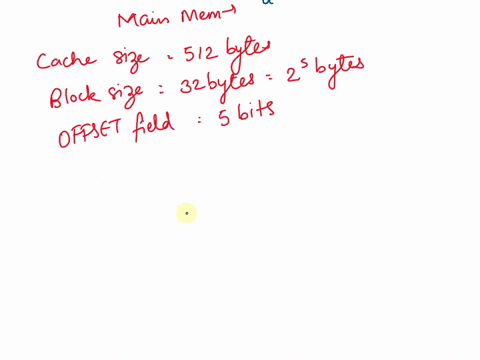 Main Mem→
Cache size = 512 bytes
Block size = 32 bytes = 2⁵ bytes
OFFSET field = 5 bits